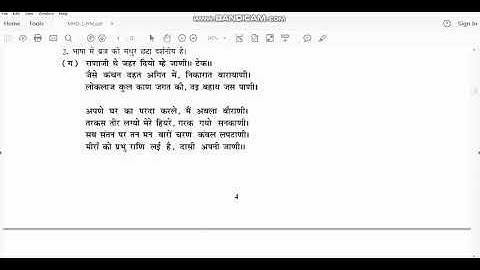 WWW.BANDICAM.COM
Home Tools
Sign In
2. भाषा में ब्रज की मधुर छटा दर्शनीय है।
(ग) राणाजी थे जहर दियो म्हे जाणी॥ टेक॥
जैसे कंचन दहत अगिन में, निकारात वाराबाणी।
लोकलाज कुल काण जगत की, दइ बहाय जस पाणी।
अपणे घर का परदा करले, मैं अबला बौराणी।
तरकस तीर लग्यो मेरे हियरे, गरक गयो सनकाणी।
सब संतन पर तन मन वारों चरण कंवल लपटाणी।
मीराँ को प्रभु राणि लई है, दासी अपनी जाणी॥
4